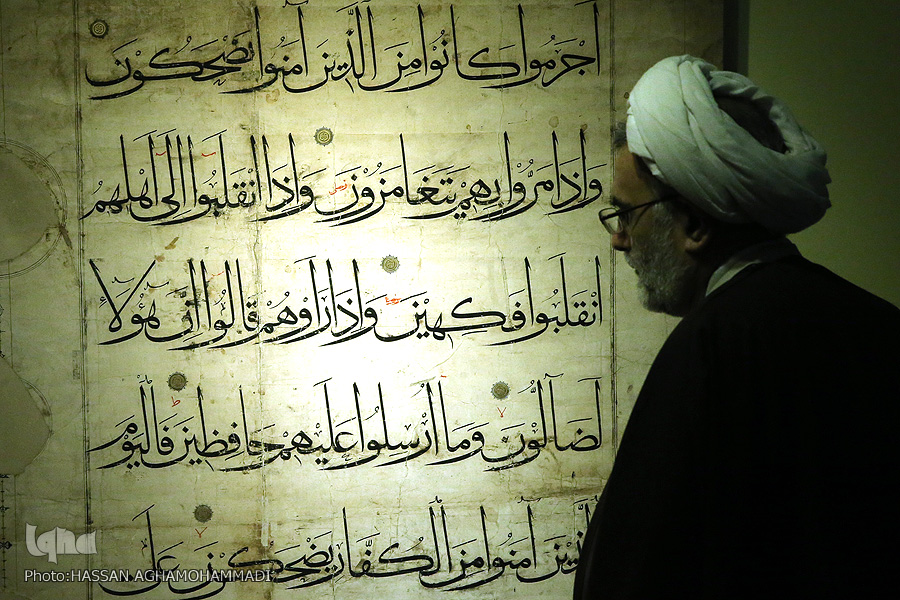 اجرموا كانوا من الذين امنوا يضحكون
واذا مروا بهم يتغامزون واذا انقلبوا الى اهلهم
انقلبوا فكهين واذا راوهم قالوا ان هؤلاء
لضالون وما ارسلوا عليهم حافظين فاليوم
الذين امنوا من الكفار يضحكون على
iqna
Photo:HASSAN AGHAMOHAMMADI